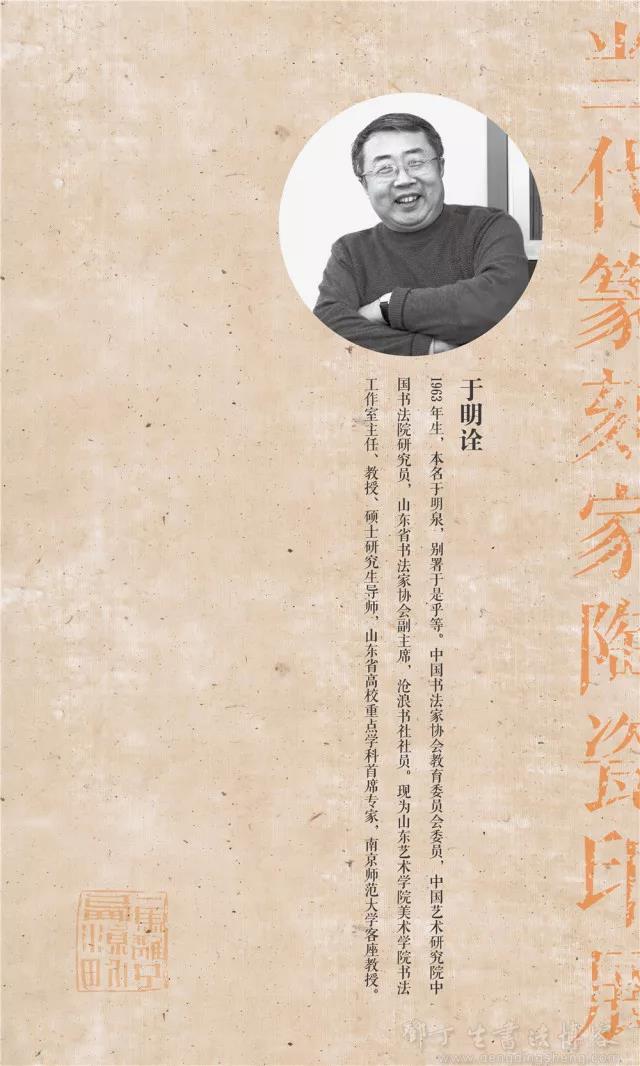 当代篆刻家陶瓷印展
于明诠
1963 年生，本名于明泉，别署于是乎等。中国书法家协会教育委员会委员，中国艺术研究院中
国书法院研究员，山东省书法家协会副主席，沧浪书社社员。现为山东艺术学院美术学院书法
工作室主任、教授、硕士研究生导师，山东省高校重点学科首席专家，南京师范大学客座教授。
邓丁生书法博客
www.dengdingsheng.com